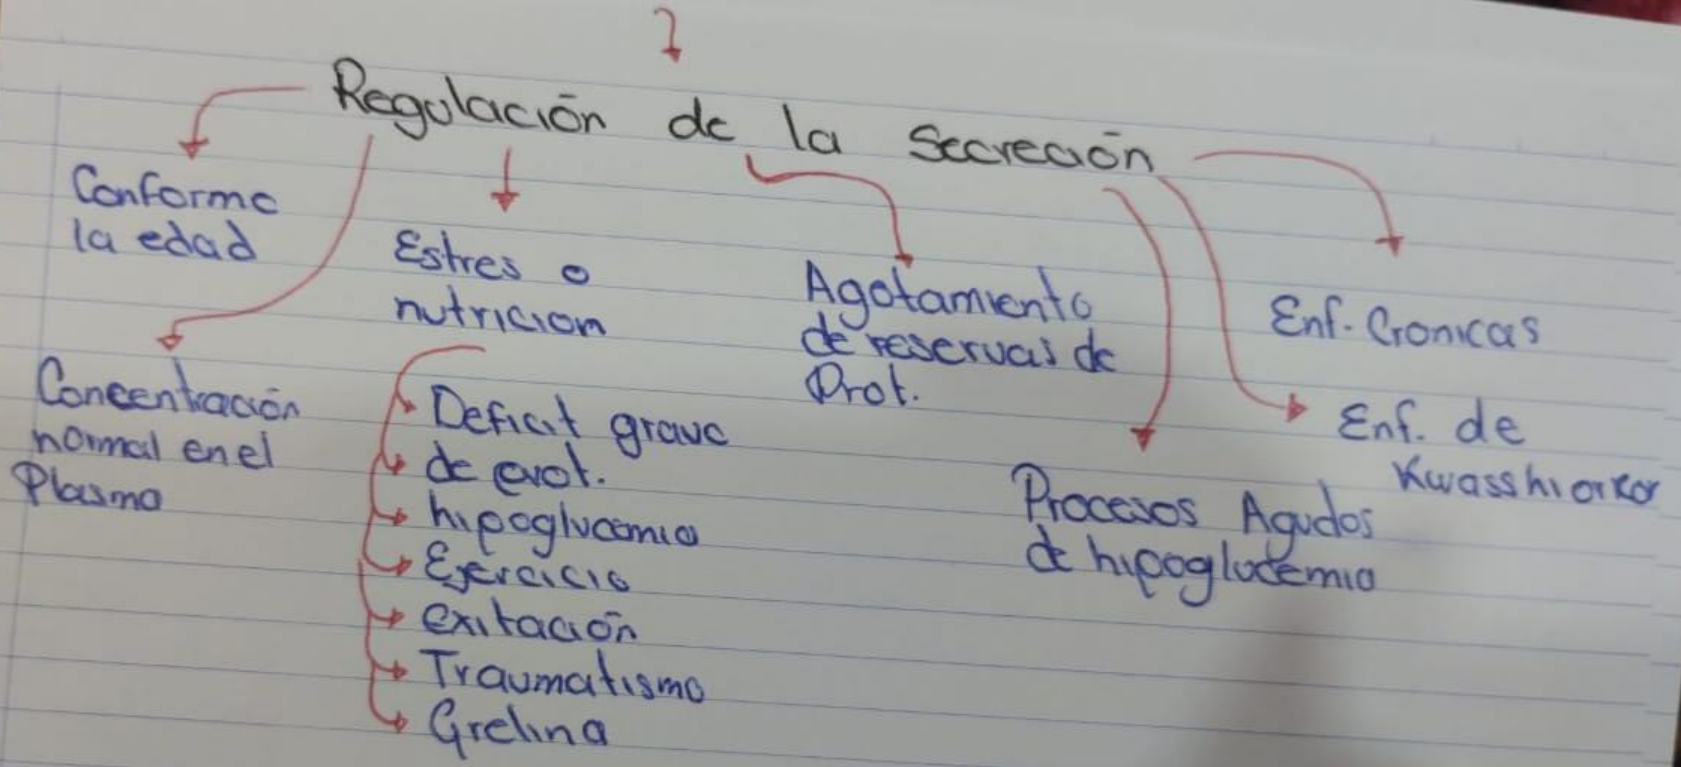 Regulación de la Secreción
Conforme
la edad
Concentración
normal en el
Plasma
Estres o
nutricion
Deficit grave
de prot.
hipoglucemia
Ejercicio
Exitación
Traumatismo
Grelina
Agotamiento
de reservas de
Prot.
Procesos Agudos
de hipoglucemia
Enf. Cronicas
Enf. de
Kwasshiorkor